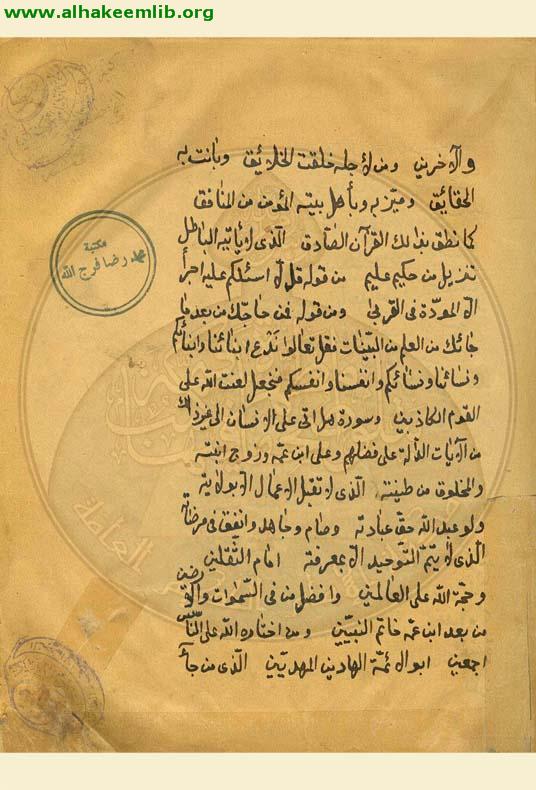 www.alhakeemlib.org
والآخرين ومن لأجله خلقت الخلائق وبانت به
الحقائق وميّز به وبأهل بيته المؤمن من المنافق
كما نطق بذالك القرآن الصّادق الّذى لا يأتيه الباطل
تنزيل من حكيم عليم من قوله قل لا اسئلكم عليه اجرأ
الّا المودّة فى القربى ومن قوله فمن حاجّك من بعد ما
جائك من العلم من البيّنات فقل تعالوا ندع ابنائنا وابنائكم
ونسائنا ونسائكم وانفسنا وانفسكم فنجعل لعنت الله على
القوم الكاذبين وسورة هل اتى على الانسان الى غير ذالك
من الآيات الدّالة على فضلهم وعلى ابن عمّه وزوج ابنته
والمخلوق من طينته الّذى لا تقبل الاعمال الّا بولايته
ولو عبد الله حقّ عبادته وصام وجاهد وانفق فى مرضاته
الّذى لا يتمّ التّوحيد الّا بمعرفته امام الثّقلين
وحجّة الله على العالمين وافضل من فى السّموات والارضين
من بعد ابن عمّه خاتم النبيّين ومن اختاره الله على النّاس
اجمعين ابو الائمّة الهادين المهديّين الّذى من جآء
مكتبة
محمد رضا فرج الله